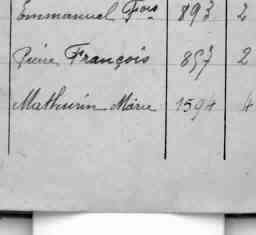 Emmanuel Fois 893 2
Pierre François 857 2
Mathurin Marie 1594 4